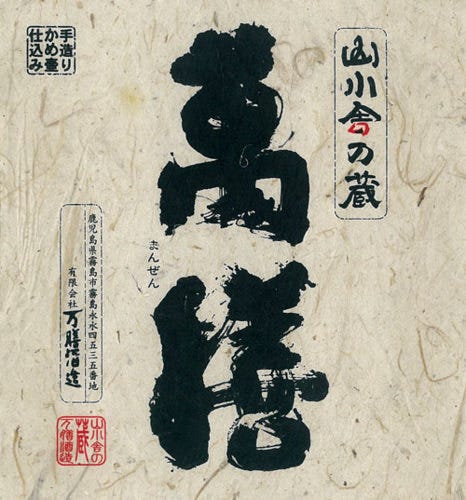 山小舎の蔵
萬膳
まんぜん
手造り
かめ壺
仕込み
鹿児島県霧島市霧島永水四五三五番地
有限会社 万膳酒造
山小舎の
蔵
万膳酒造